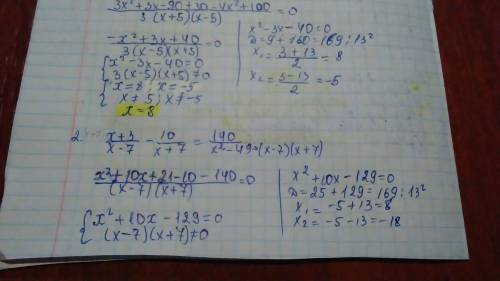 3x²+3x-90+30-4x²+100 / 3(x+5)(x-5) = 0
-x²+3x+40 / 3(x-5)(x+5) = 0
{ x²-3x-40=0
3(x-5)(x+5)≠0
{ x=8 ; x=-5
x≠5 ; x≠-5
x=8
x²-3x-40=0
D=9+160=169; 13²
x₁= 3+13 / 2 = 8
x₂= 3-13 / 2 = -5
2. x+3 / x-7 - 10 / x+7 = 140 / x²-49=(x-7)(x+7)
x²+10x+21-10-140 / (x-7)(x+7) = 0
{ x²+10x-129=0
(x-7)(x+7)≠0
x²+10x-129=0
D=25+129=169; 13²
x₁= -5+13=8
x₂=-5-13=-18